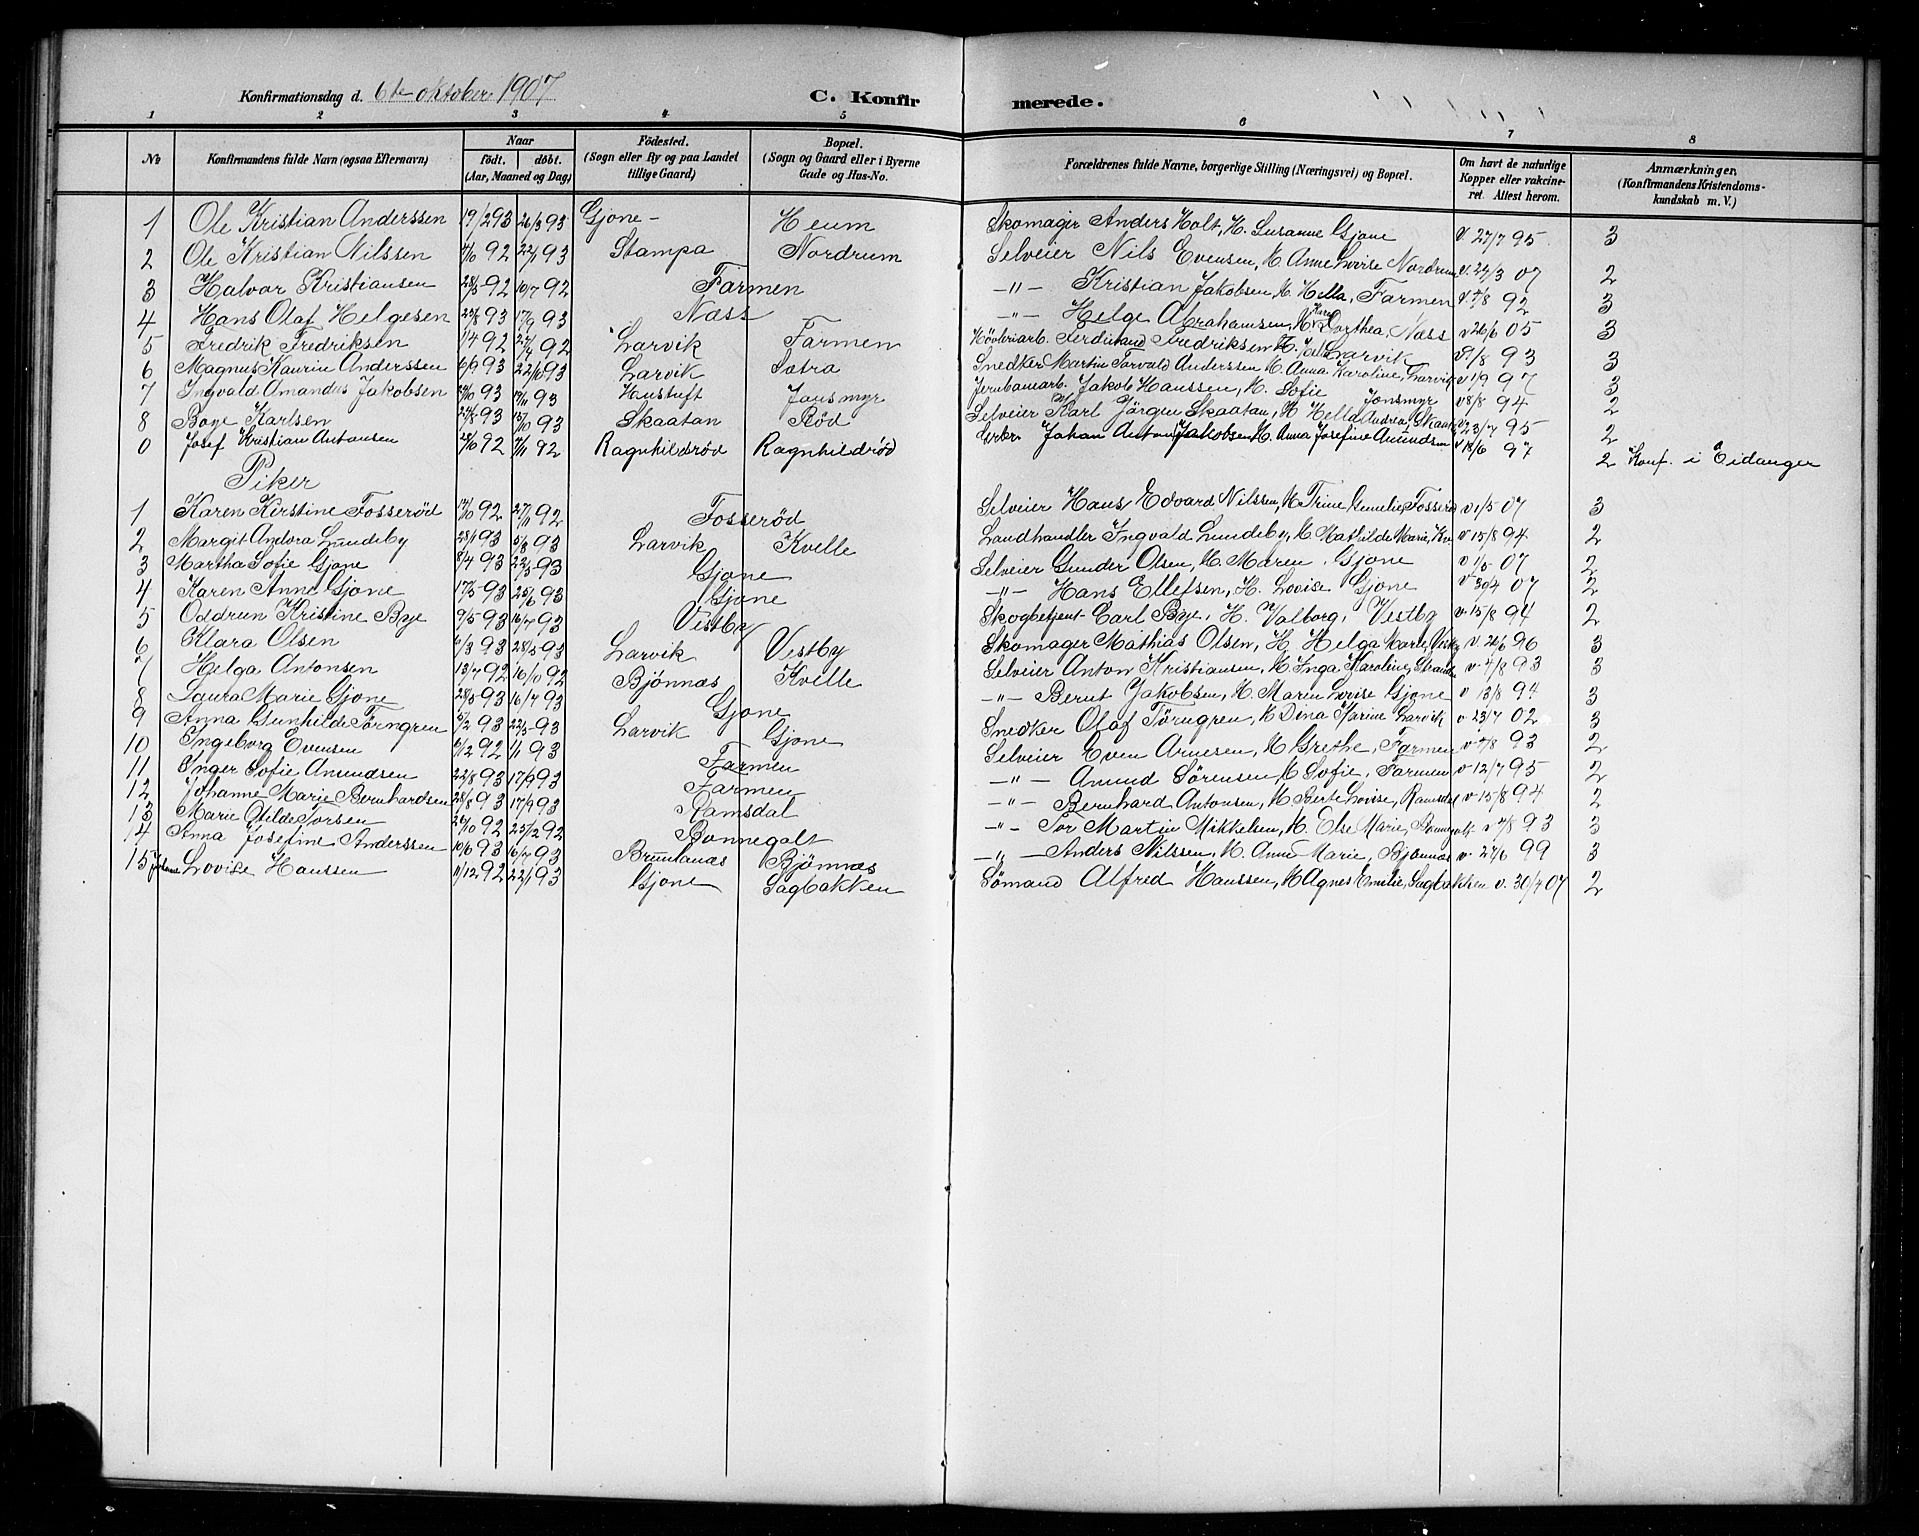 Konfirmationsdag d. 6te oktober 1907 C. Konfir merede.
1 2 3 4 5 6 7 8
No Konfirmandens fulde Navn (ogsaa Efternavn) Naar født. døbt. (Aar, Maaned og Dag) Fødested. (Sogn eller By og paa Landet tillige Gaard) Bopæl. (Sogn og Gaard eller i Byerne Gade og Hus-No. Forældrenes fulde Navne, borgerlige Stilling (Næringsvei) og Bopæl. Om havt de naturlige Kopper eller vakcineret. Attest herom. Anmærkninger. (Konfirmandens Kristendomskundskab m. V.)
1 Ole Kristian Anderssen 19/2 93 26/3 93 Gjone - Heum Skomager Anders Holt, H. Susanne Gjone v. 27/7 95 3
2 Ole Kristian Nilssen 92 22/1 93 Stampa Nordrum Selveier Nils Evensen, H. Anne Lovise Nordrum v. 22/3 07 2
3 Halvor Kristiansen 28/5 92 10/7 92 Farmen -"- Kristian Jakobsen H. Hella, Farmen v. 4/8 92 3
4 Hans Olaf Helgesen 93 17/9 93 Næss -"- Helge Abrahamsen, H. Karen Dorthea, Næss v 26/6 05 3
5 Fredrik Fredriksen 1/4 92 92 Larvik Farmen Høvleriarb. Ferdinand Fredriksen H. Larvik v 93 3
6 Magnus Kaurin Anderssen 6/9 93 22/10 93 Larvik Sætra Snedker Martin Torvald Anderssen H. Anna Karoline, Larvik v 1/9 97 3
7 Ingvald Amandus Jakobsen 93 93 Hustuft Jonsmyr Jernbanearb. Jakob Hanssen, H. Sofie Jonsmyr v 8/8 94 2
8 Boye Karlsen 93 15/10 93 Skaatan Rød Selveier Karl Jørgen Skaatan, H Hella Andrea, Skaatan v 23/7 95 2
0 Josef Kristian Antonsen 28/10 92 92 Ragnhildrød Ragnhildrød Johan Anton Jakobsen H. Anna Josefine Amundsen v 18/6 97 2 Konf. i Eidanger
Piker
1 Karen Kirstine Fosserød 92 27/11 92 Fosserød Selveier Hans Edvard Nilssen, H. Trine Gunelie Fosserød v 1/5 07 3
2 Margit Andora Lundeby 28/1 93 5/8 93 Larvik Kvelle Landhandler Ingvald Lundeby, H. Mathilde Marie, Kv v 15/8 94 2
3 Martha Sofie Gjone 8/4 93 22/5 93 Gjone Selveier Gunder Olsen, H. Maren, Gjone v 1/5 07 2
4 Karen Anne Gjone 17/5 93 25/6 93 Gjone -"- Hans Ellefsen, H. Lovise Gjone v 30/4 07 2
5 Oddrun Kristine Bye 9/5 93 16/7 93 Vestby Skogbetjent Carl Bye, H. Valborg, Vestby v. 15/8 94 2
6 Klara Olsen 93 28/5 93 Larvik Vestby Skomager Mathias Olsen, H. Helga Marie, Vestby v. 26/6 96 3
7 Helga Antonsen 13/7 92 16/10 92 Bjønnæs Kvelle Selveier Anton Kristiansen, H. Inga Karoline, v 4/8 93 3
8 Laura Marie Gjone 28/5 93 16/7 93 Gjone -"- Bernt Jakobsen, H. Maren Lovise Gjone v 13/8 94 3
9 Anna Gunhilde Törngren 93 22/5 93 Larvik Gjone Snedker Olaf Törngren, H Dina Marine Larvik v 23/7 02 3
10 Ingeborg Evensen 92 1/1 93 Farmen Selveier Even Arnesen, H Grethe, Farmen v 4/8 93 2
11 Inger Sofie Amundsen 22/8 93 17/9 93 Farmen -"- Amund Sørensen, H Sofie, Farmen v 12/7 95 2
12 Johanne Marie Bernhardsen 28/8 93 17/9 93 Ramsdal -"- Bernhard Antonsen, H Berte Lovise, Ramsdal v 15/8 94 2
13 Marie Otilde Torsen 92 92 Bonnegalt -"- Tor Martin Mikkelsen, H. Else Marie, v 93 3
14 Anna Josefine Anderssen 10/6 93 16/7 93 Brunlanæs Bjønnæs -"- Anders Nilssen, H. Anne Marie, Bjønnæs v. 99 3
15 Lovise Hanssen 11/12 92 22/1 93 Gjone Sagbakken Sømand Alfred Hanssen, H Agnes Emilie, Sagbakken v. 30/4 07 2